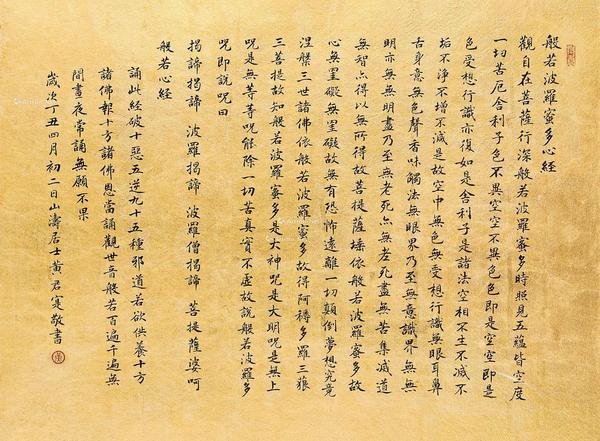 般若波羅蜜多心經
觀自在菩薩行深般若波羅蜜多時照見五蘊皆空度
一切苦厄舍利子色不異空空不異色色即是空空即是
色受想行識亦復如是舍利子是諸法空相不生不滅不
垢不淨不增不減是故空中無色無受想行識無眼耳鼻
舌身意無色聲香味觸法無眼界乃至無意識界無無
明亦無無明盡乃至無老死亦無老死盡無苦集滅道
無智亦得以無所得故菩提薩埵依般若波羅蜜多故
心無罣礙無罣礙故無有恐怖遠離一切顛倒夢想究竟
涅槃三世諸佛依般若波羅蜜多故得阿耨多羅三藐
三菩提故知般若波羅蜜多是大神咒是大明咒是無上
咒是無等等咒能除一切苦真實不虛故說般若波羅蜜多
咒即說咒曰
揭諦揭諦 波羅揭諦 波羅僧揭諦 菩提薩婆呵
般若心經
誦此經破十惡五逆九十五種邪道若欲供養十方
諸佛報十方諸佛恩當誦觀世音般若百遍千遍無
間晝夜常誦無願不果
歲次丁丑四月初二日山濤居士黃君寔敬書